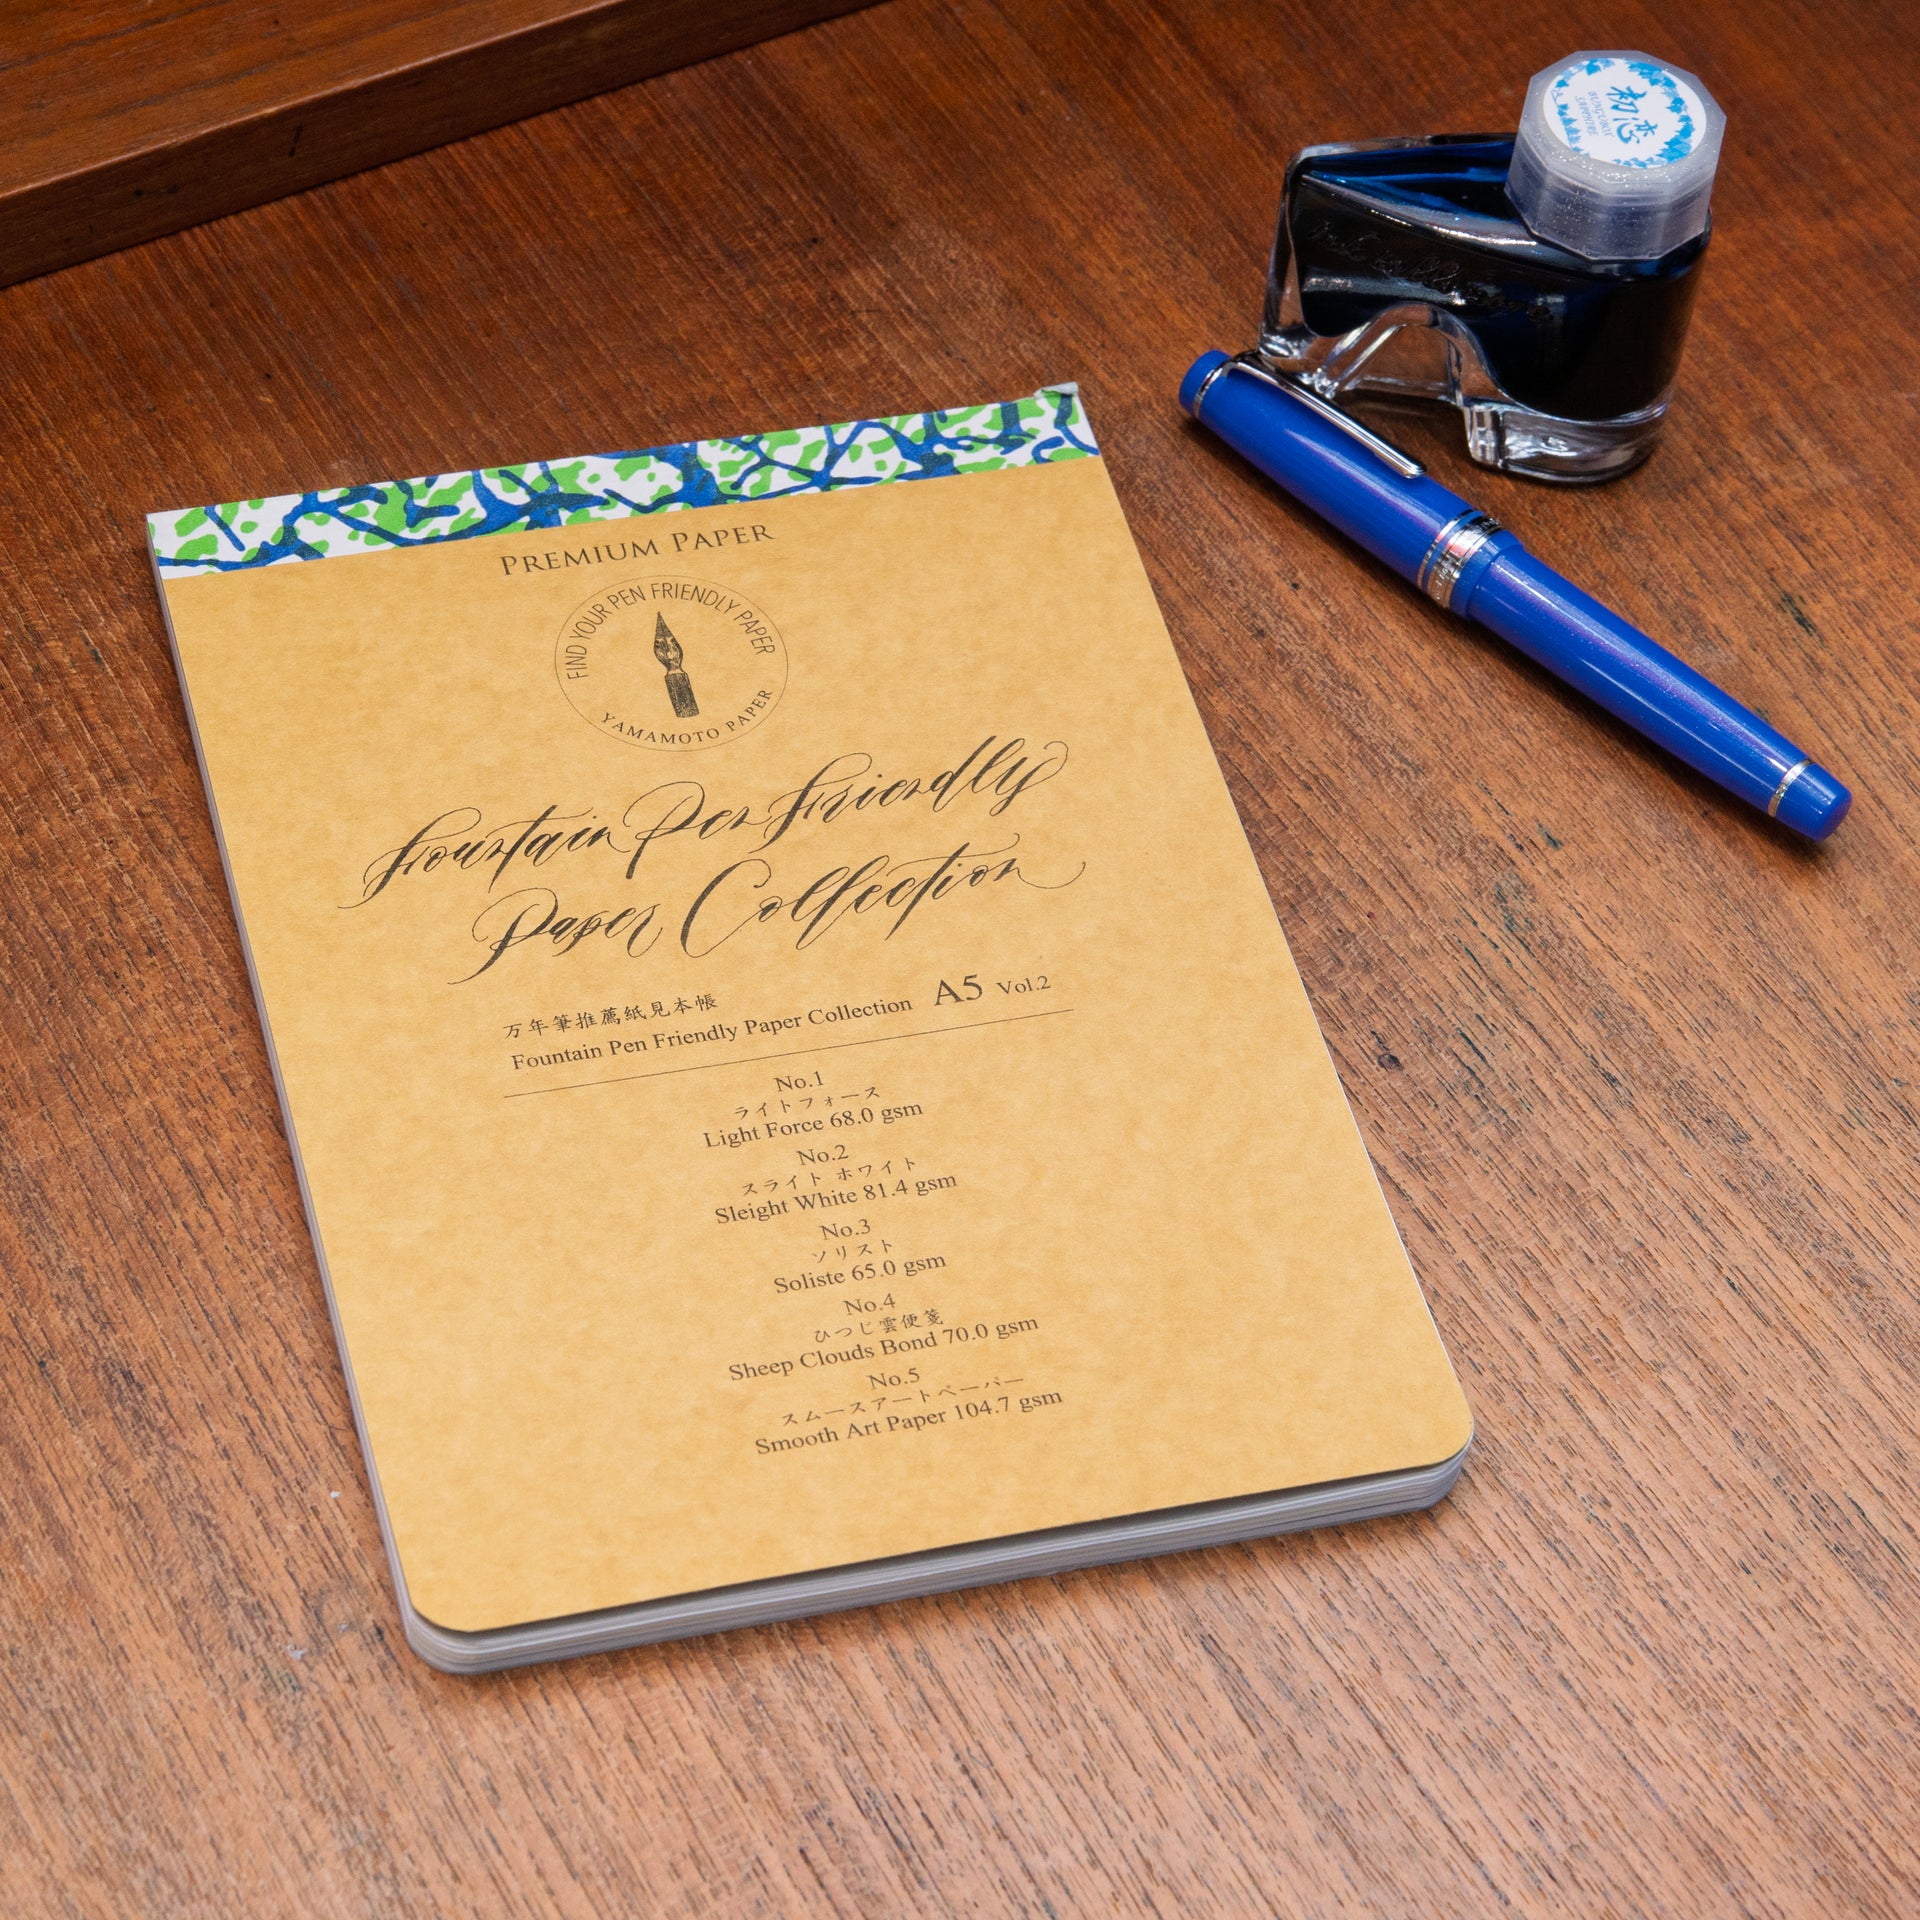 PREMIUM PAPER
FIND YOUR PEN FRIENDLY PAPER
YAMAMOTO PAPER
Fountain Pen Friendly
Paper Collection
万年筆推薦紙見本帳
Fountain Pen Friendly Paper Collection A5 Vol.2
No.1
ライトフォース
Light Force 68.0 gsm
No.2
スライト ホワイト
Sleight White 81.4 gsm
No.3
ソリスト
Soliste 65.0 gsm
No.4
ひつじ雲便箋
Sheep Clouds Bond 70.0 gsm
No.5
スムースアートペーパー
Smooth Art Paper 104.7 gsm
初恋
BUNGUBOX
SAPPHIRE